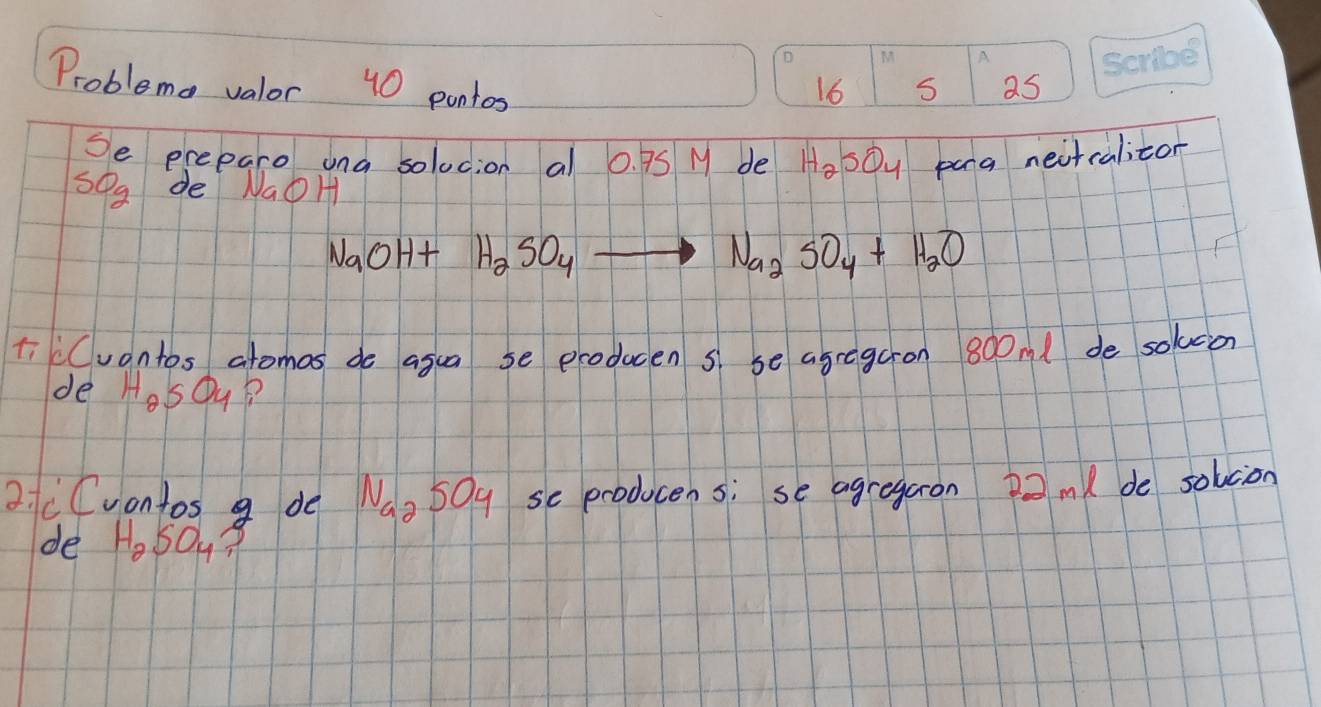 Problema valor 40 puntos
D M A
16 5 25
Scribe
Se preparo una solucion al 0.75 M de H₂SO₄ para neutralizar
50g de NaOH
NaOH + H₂SO₄ → Na₂SO₄ + H₂O
1.- ¿Cuantos atomos de agua se producen si se agregaron 800ml de solucion
de H₂SO₄?
2.- ¿Cuantos g de Na₂SO₄ se producen si se agregaron 22 ml de solucion
de H₂SO₄?